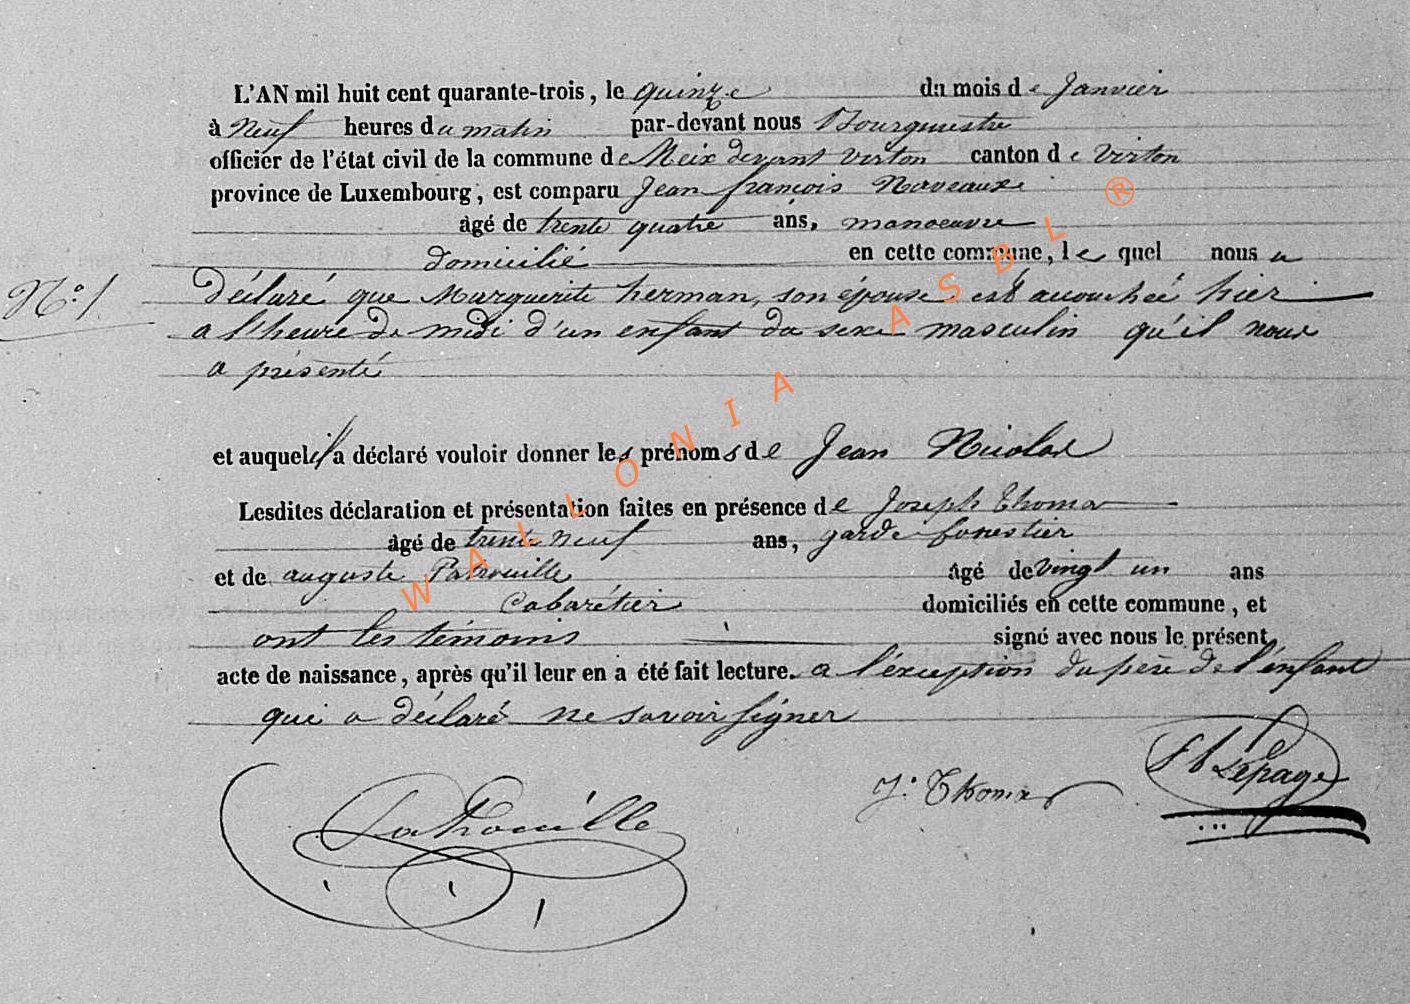 L'AN mil huit cent quarante-trois, le quinze du mois de Janvier
à Neuf heures du matin par-devant nous Bourguestre
officier de l'état civil de la commune de Meix devant virton canton de Virton
province de Luxembourg, est comparu Jean françois Naveaux
âgé de trente quatre ans, manoeuvre
domicilié en cette commune, le quel nous a
Déclaré que Marguerite herman, son épouse est acouchée hier
N.º 1
a l'heure de midi d'un enfant du sexe masculin qu'il nous
a présenté
et auquel il a déclaré vouloir donner les prénoms de Jean Nicolas
Lesdites déclaration et présentation faites en présence de Joseph Thomas
âgé de trente neuf ans, garde forestier
et de auguste Patrouille âgé de vingt un ans
Cabarétier domiciliés en cette commune, et
ont les témoins signé avec nous le présent
acte de naissance, après qu'il leur en a été fait lecture. a l'éxception du père de l'énfant
qui a déclaré ne savoir signer
Patrouille J. Thomas Lepage
WALLONIA ASBL ®